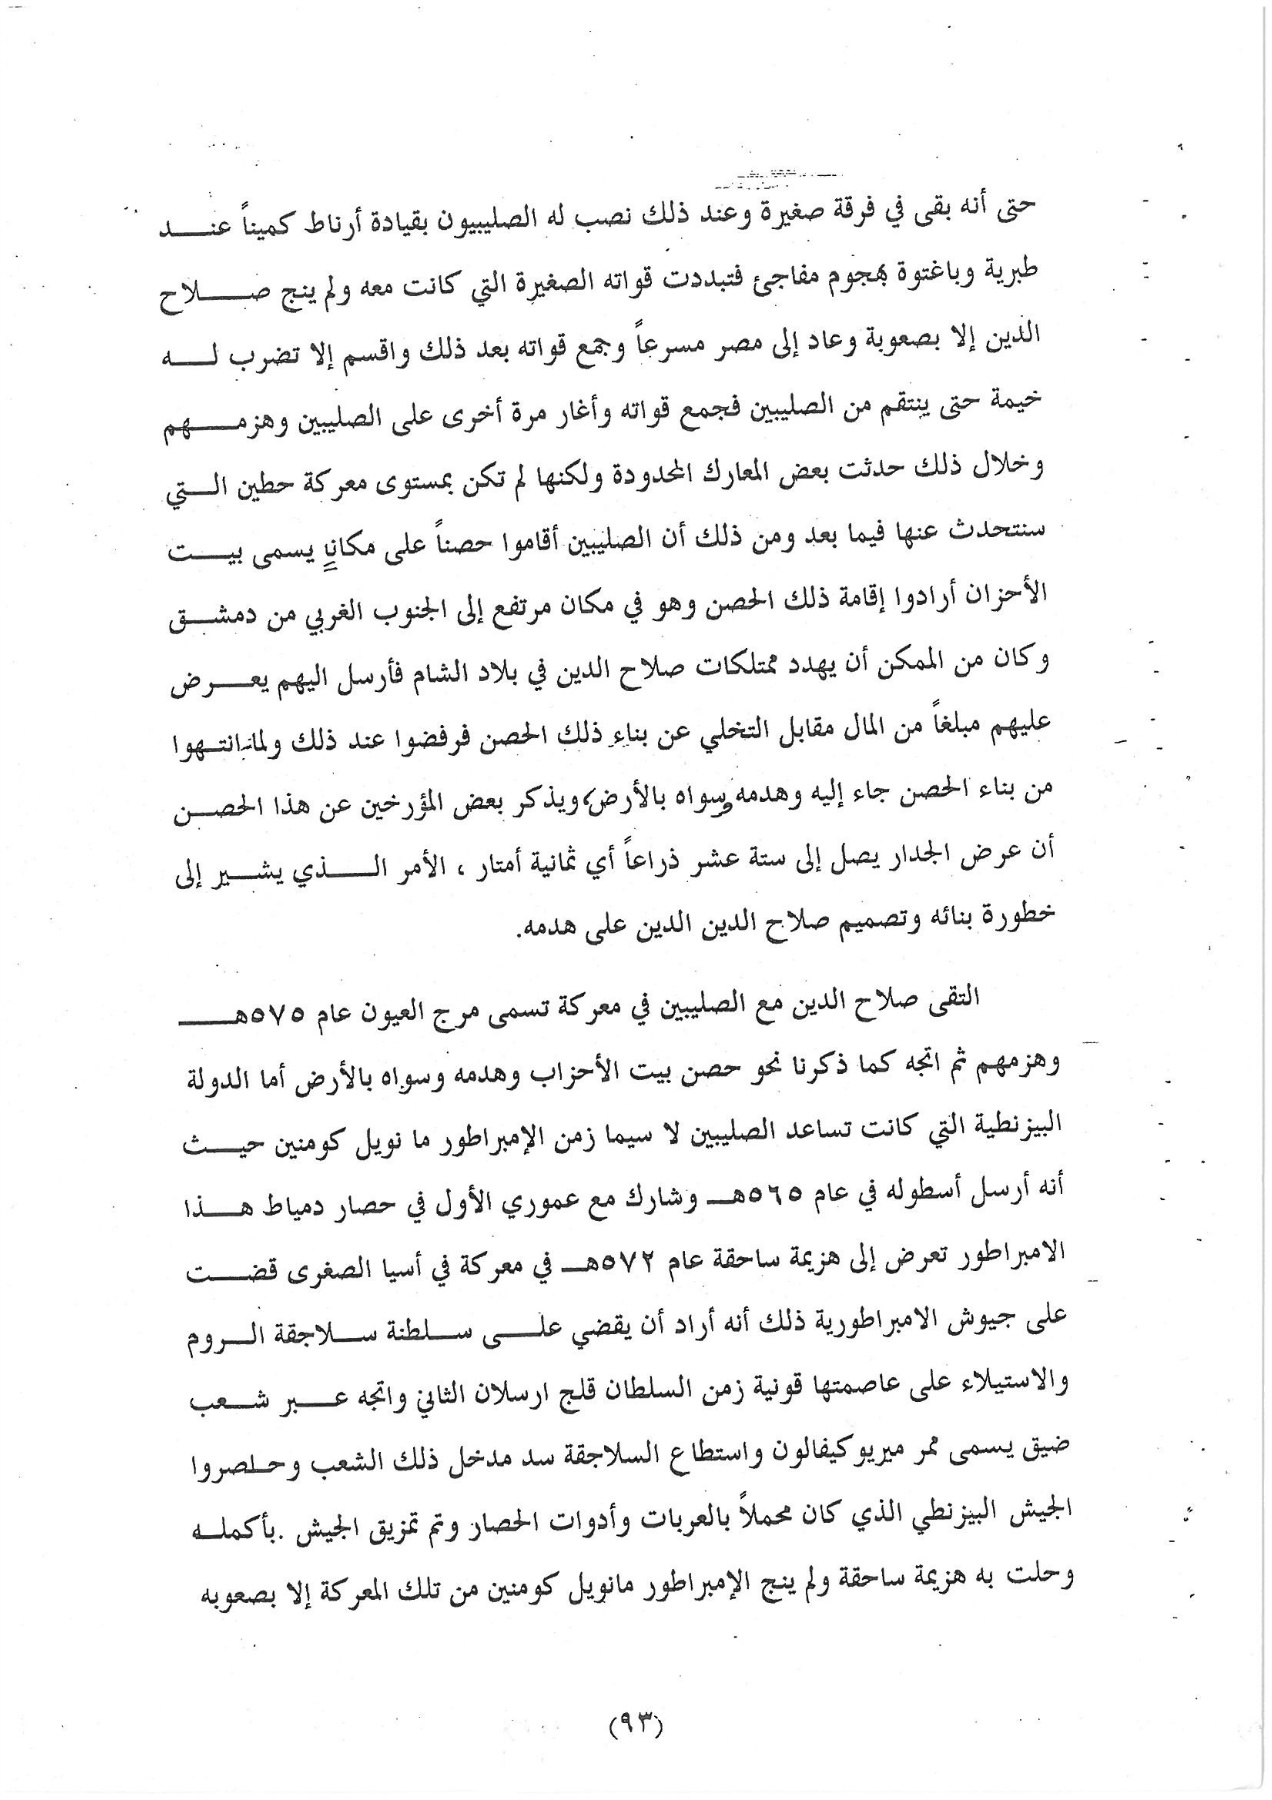 حتى أنه بقى في فرقة صغيرة وعند ذلك نصب له الصليبيون بقيادة أرناط كميناً عند
طبرية وباغتوة بهجوم مفاجئ فتبددت قواته الصغيرة التي كانت معه ولم ينج صلاح
الدين إلا بصعوبة وعاد إلى مصر مسرعاً وجمع قواته بعد ذلك واقسم إلا تضرب له
خيمة حتى ينتقم من الصليبين فجمع قواته وأغار مرة أخرى على الصليبين وهزمهم
وخلال ذلك حدثت بعض المعارك المحدودة ولكنها لم تكن بمستوى معركة حطين التي
سنتحدث عنها فيما بعد ومن ذلك أن الصليبين أقاموا حصناً على مكانٍ يسمى بيت
الأحزان أرادوا إقامة ذلك الحصن وهو في مكان مرتفع إلى الجنوب الغربي من دمشق
وكان من الممكن أن يهدد ممتلكات صلاح الدين في بلاد الشام فأرسل اليهم يعرض
عليهم مبلغاً من المال مقابل التخلي عن بناء ذلك الحصن فرفضوا عند ذلك ولما انتهوا
من بناء الحصن جاء إليه وهدمه وسواه بالأرض، ويذكر بعض المؤرخين عن هذا الحصن
أن عرض الجدار يصل إلى ستة عشر ذراعاً أي ثمانية أمتار ، الأمر الذي يشير إلى
خطورة بنائه وتصميم صلاح الدين الدين على هدمه.
التقى صلاح الدين مع الصليبين في معركة تسمى مرج العيون عام ٥٧٥هـ
وهزمهم ثم اتجه كما ذكرنا نحو حصن بيت الأحزاب وهدمه وسواه بالأرض أما الدولة
البيزنطية التي كانت تساعد الصليبين لا سيما زمن الإمبراطور ما نويل كومنين حيث
أنه أرسل أسطوله في عام ٥٦٥هـ وشارك مع عموري الأول في حصار دمياط هذا
الامبراطور تعرض إلى هزيمة ساحقة عام ٥٧٢هـ في معركة في أسيا الصغرى قضت
على جيوش الامبراطورية ذلك أنه أراد أن يقضي على سلطنة سلاجقة الروم
والاستيلاء على عاصمتها قونية زمن السلطان قلج ارسلان الثاني واتجه عبر شعب
ضيق يسمى ممر ميريوكيفالون واستطاع السلاجقة سد مدخل ذلك الشعب وحاصروا
الجيش البيزنطي الذي كان محملاً بالعربات وأدوات الحصار وتم تمزيق الجيش .بأكمله
وحلت به هزيمة ساحقة ولم ينج الإمبراطور مانويل كومنين من تلك المعركة إلا بصعوبه
(٩٣)